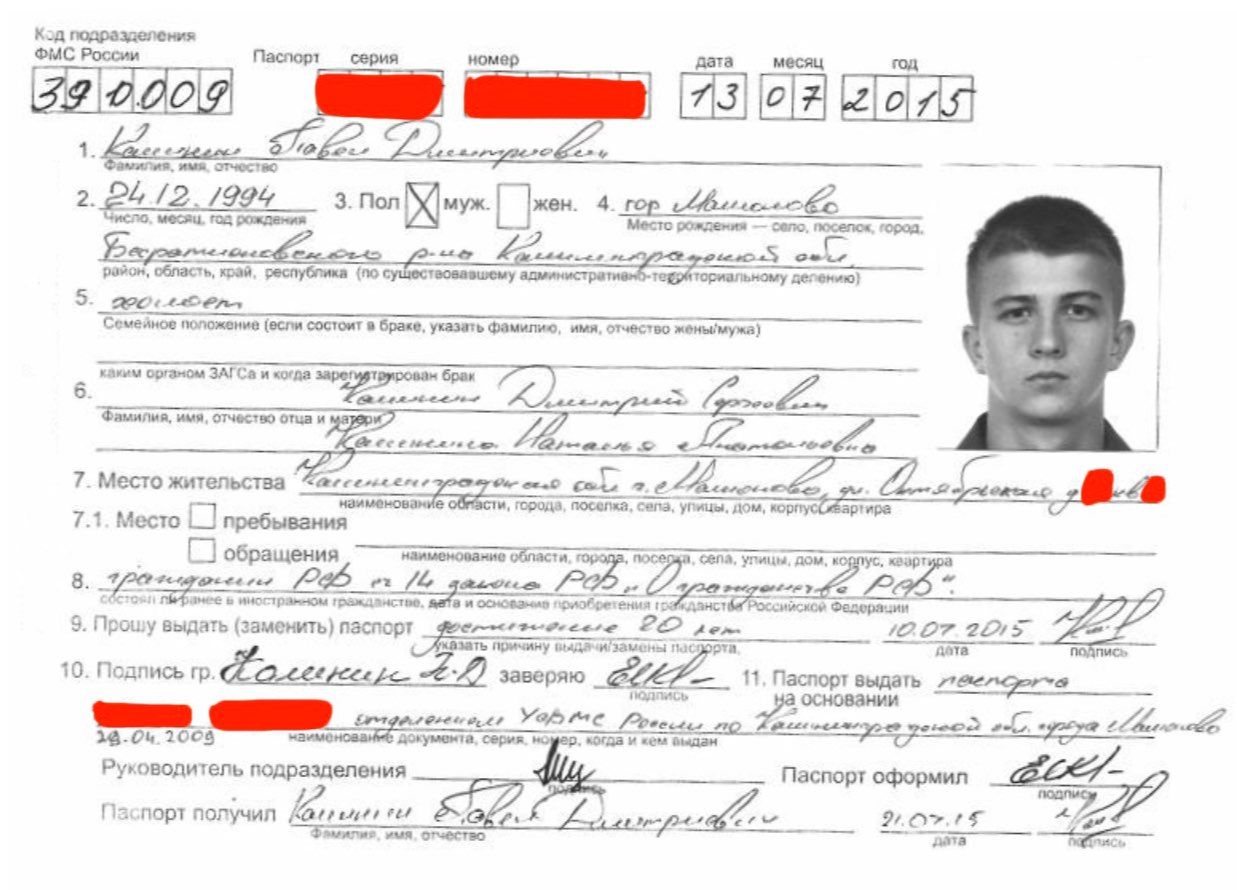 Код подразделения
ФМС России
Паспорт серия номер дата месяц год
390.009 13 07 2015
1. Калинин Павел Дмитриевич
Фамилия, имя, отчество
2. 24.12.1994 3. Пол муж. жен. 4. гор Мамоново
Число, месяц, год рождения Место рождения — село, поселок, город,
Багратионовского р-на Калининградской обл.
район, область, край, республика (по существовавшему административно-территориальному делению)
5. холост
Семейное положение (если состоит в браке, указать фамилию, имя, отчество жены/мужа)
каким органом ЗАГСа и когда зарегистрирован брак
6. Калинин Дмитрий Сергеевич
Фамилия, имя, отчество отца и матери
Калинина Наталья Анатольевна
7. Место жительства Калининградская обл г. Мамоново, ул. Октябрьская д кв
наименование области, города, поселка, села, улицы, дом, корпус, квартира
7.1. Место пребывания
обращения
наименование области, города, поселка, села, улицы, дом, корпус, квартира
8. гражданин РФ ст 14 закона РФ "О гражданстве РФ".
состоял ли ранее в иностранном гражданстве, дата и основание приобретения гражданства Российской Федерации
9. Прошу выдать (заменить) паспорт достижение 20 лет 10.07.2015
указать причину выдачи/замены паспорта, дата подпись
10. Подпись гр. Калинин П.Д заверяю 11. Паспорт выдать паспорта
подпись на основании
отделением УФМС России по Калининградской обл. города Мамоново
29.04.2009 наименование документа, серия, номер, когда и кем выдан
Руководитель подразделения Паспорт оформил
подпись подпись
Паспорт получил Калинин Павел Дмитриевич 21.07.15
Фамилия, имя, отчество дата подпись